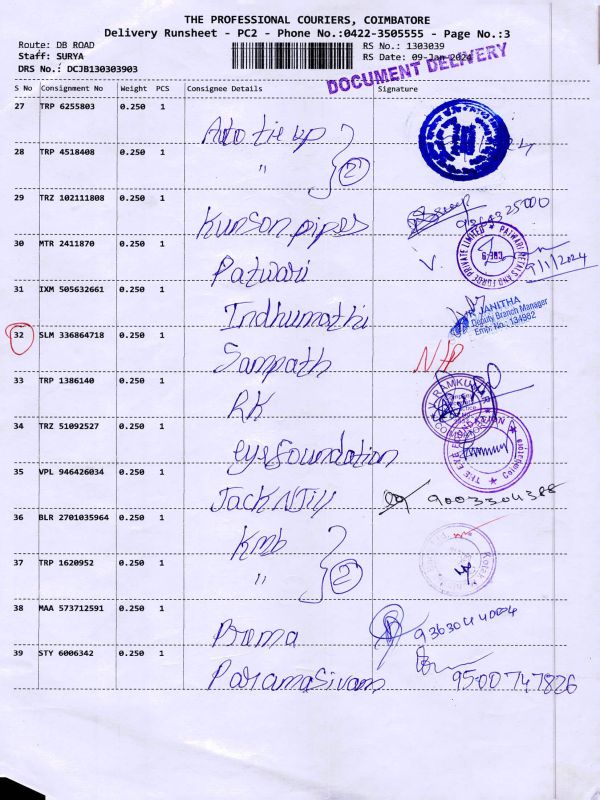 THE PROFESSIONAL COURIERS, COIMBATORE
Delivery Runsheet - PC2 - Phone No.:0422-3505555 - Page No.:3
Route: DB ROAD
Staff: SURYA
DRS No.: DCJB130303903
RS No.: 1303039
RS Date: 09-Jan-2024
DOCUMENT DELIVERY
S No Consignment No Weight PCS Consignee Details Signature
27 TRP 6255803 0.250 1 Auto tie up
28 TRP 4518408 0.250 1 " 2
29 TRZ 102111808 0.250 1 Kunson pipes
30 MTR 2411870 0.250 1 Patwari
31 IXM 505632661 0.250 1 Indhumathi
JANITHA
Deputy Branch Manager
Emp. No.: 134982
32 SLM 336864718 0.250 1 Sampath
33 TRP 1386140 0.250 1 RK
34 TRZ 51092527 0.250 1 eyefoundation
35 VPL 946426034 0.250 1 Jack N Jill 9003304388
36 BLR 2701035964 0.250 1 Kmb
37 TRP 1620952 0.250 1 " 2
38 MAA 573712591 0.250 1 Prema
39 STY 6006342 0.250 1 Paramasivam 9500747826